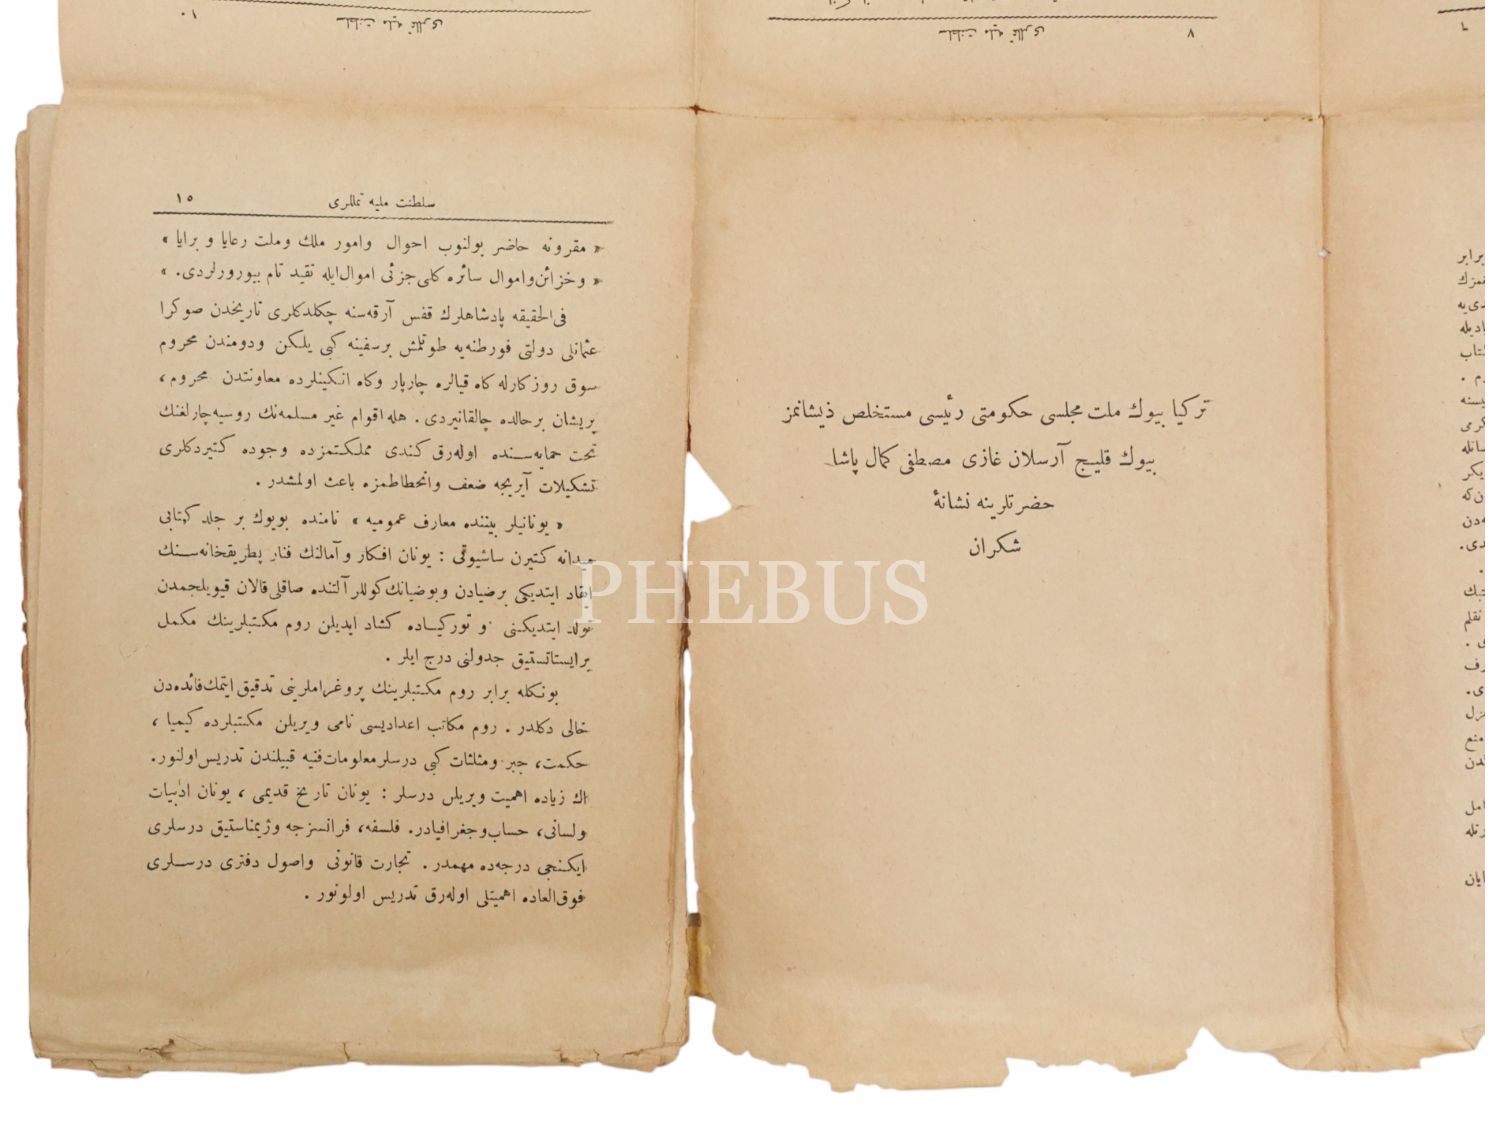 سلطنت ملیه تمللری ١٠
سلطنت ملیه تمللری ٧
٦
سلطنت ملیه تمللری ١٥
« مقرونه حاضر بولنوب احوال وامور ملك وملت رعایا و برایا »
« وخزائن‌واموال سائره كلی‌جزئی اموال‌ایله تقید تام بیورورلردی. »
فی‌الحقیقه پادشاهلرك قفس آرقه‌سنه چكلدكلری تاریخدن صوكرا
عثمانلی دولتی فورطنه‌یه طوتلمش برسفینه كبی یلكن ودومندن محروم
سوق روزكارله كاه قیالره چارپار وكاه انكینلرده معاونتدن محروم،
پریشان برحالده چالقانیردی . هله اقوام غیر مسلمه‌نك روسیه‌چارلغنك
تحت حمایه‌سنده اوله‌رق كندی مملكتمزده وجوده كتیردكلری
تشكیلات آیریجه ضعف وانحطاطمزه باعث اولمشدر .
« یونانیلر بیننده معارف عمومیه » نامنده بویوك بر جلد كتابی
میدانه كتیرن ساشیوقی : یونان افكار و آمالنك فنار پطریقخانه‌سنك
ایقاد ایتدیكی برضیادن وبوضیانك كوللر آلتنده صاقلی قالان قیویلجمدن
تولد ایتدیكنی و توركیاده كشاد ایدیلن روم مكتبلرینك مكمل
برایستاتستیق جدولنی درج ایلر .
بونكله برابر روم مكتبلرینك پروغراملرینی تدقیق ایتمك‌فائده‌دن
خالی دكلدر . روم مكاتب اعدادیسی نامی ویریلن مكتبلرده كیمیا ،
حكمت، جبر ومثلثات كبی درسلر معلومات‌فنیه قبیلندن تدریس‌اولنور.
اك زیاده اهمیت ویریلن درسلر : یونان تاریخ قدیمی ، یونان ادبیات
ولسانی، حساب‌وجغرافیادر. فلسفه، فرانسزجه وژیمناستیق درسلری
ایكنجی درجه‌ده مهمدر . تجارت قانونی واصول دفتری درسلری
فوق‌العاده اهمیتلی اوله‌رق تدریس اولونور .
تركیا بیوك ملت مجلسی حكومتی رئیسی مستخلص ذیشانمز
بیوك قلیج آرسلان غازی مصطفی كمال پاشا
حضرتلرینه نشانۀ
شكران
PHEBUS
برابر
كتاب
نقلم
منع